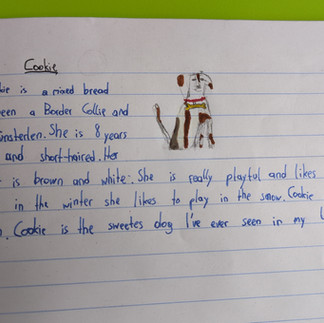 Cookie
is a mixed bread
a Border Collie and
She is 8 years
and short-haired. Her
is brown and white. She is really playful and likes
in the winter she likes to play in the snow. Cookie
Cookie is the sweetes dog I've ever seen in my